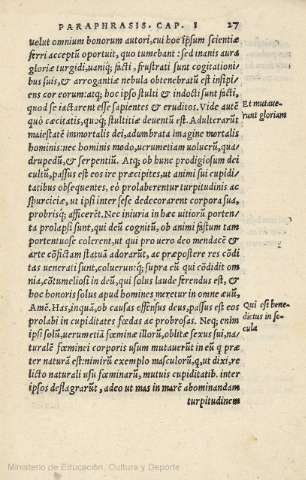 PARAPHRASIS. CAP. I 27
uelut omnium bonorum autori, cui hoc ipsum scientiæ
ferri acceptũ oportuit, quo tumebant: sed inanis aura
gloriæ turgidi, uaniq; facti, frustrati sunt cogitationi
bus suis, & arrogantiæ nebula obtenebratũ est insipi
ens cor eorum: atq; hoc ipso stulti & indocti sunt facti,
quod se iactarent esse sapientes & eruditos. Vide autẽ
Et mutaue-
quò cæcitatis, quoq; stultitiæ deuentũ est. Adulterarũt
runt gloriam
maiestatẽ immortalis dei, adumbrata imagine mortalis
hominis: nec hominis modo, uerumetiam uolucrũ, qua
drupedũ, & serpentiũ. Atq; ob hunc prodigiosum dei
cultũ, passus est eos ire præcipites, ut animi sui cupidi
tatibus obsequentes, eò prolaberentur turpitudinis ac
spurciciæ, ut ipsi inter sese dedecorarent corpora sua,
probrisq; afficerẽt. Nec iniuria in hæc uitiorũ porten
ta prolapsi sunt, qui deũ cognitũ, ob animi fastum tam
portentose colerent, ut qui pro uero deo mendacẽ &
arte cõfictam statuã adorarũt, ac præpostere res cõdi
tas uenerati sunt, coluerunt'q; supra eũ qui cõdidit om
nia, cõtumeliosi in deũ, qui solus laude ferendus est, &
hoc honoris solus apud homines meretur in omne æuũ,
Qui est bene
Amẽ. Has, inquã, ob causas offensus deus, passus est eos
dictus in se-
cula
prolabi in cupiditates fœdas ac probrosas. Neq; enim
ipsi solũ, uerumetiã fœminæ illorũ, oblitæ sexus sui, na/
turalẽ fœminei corporis usum mutauerũt in eũ q præ
ter naturã est: nimirũ exemplo masculorũ, q, ut dixi, re
licto naturali usu fœminarũ, mutuis cupiditatib. inter
ipsos deflagrarũt, adeo ut mas in marẽ abominandam
turpitudinem
Ministerio de Educación, Cultura y Deporte